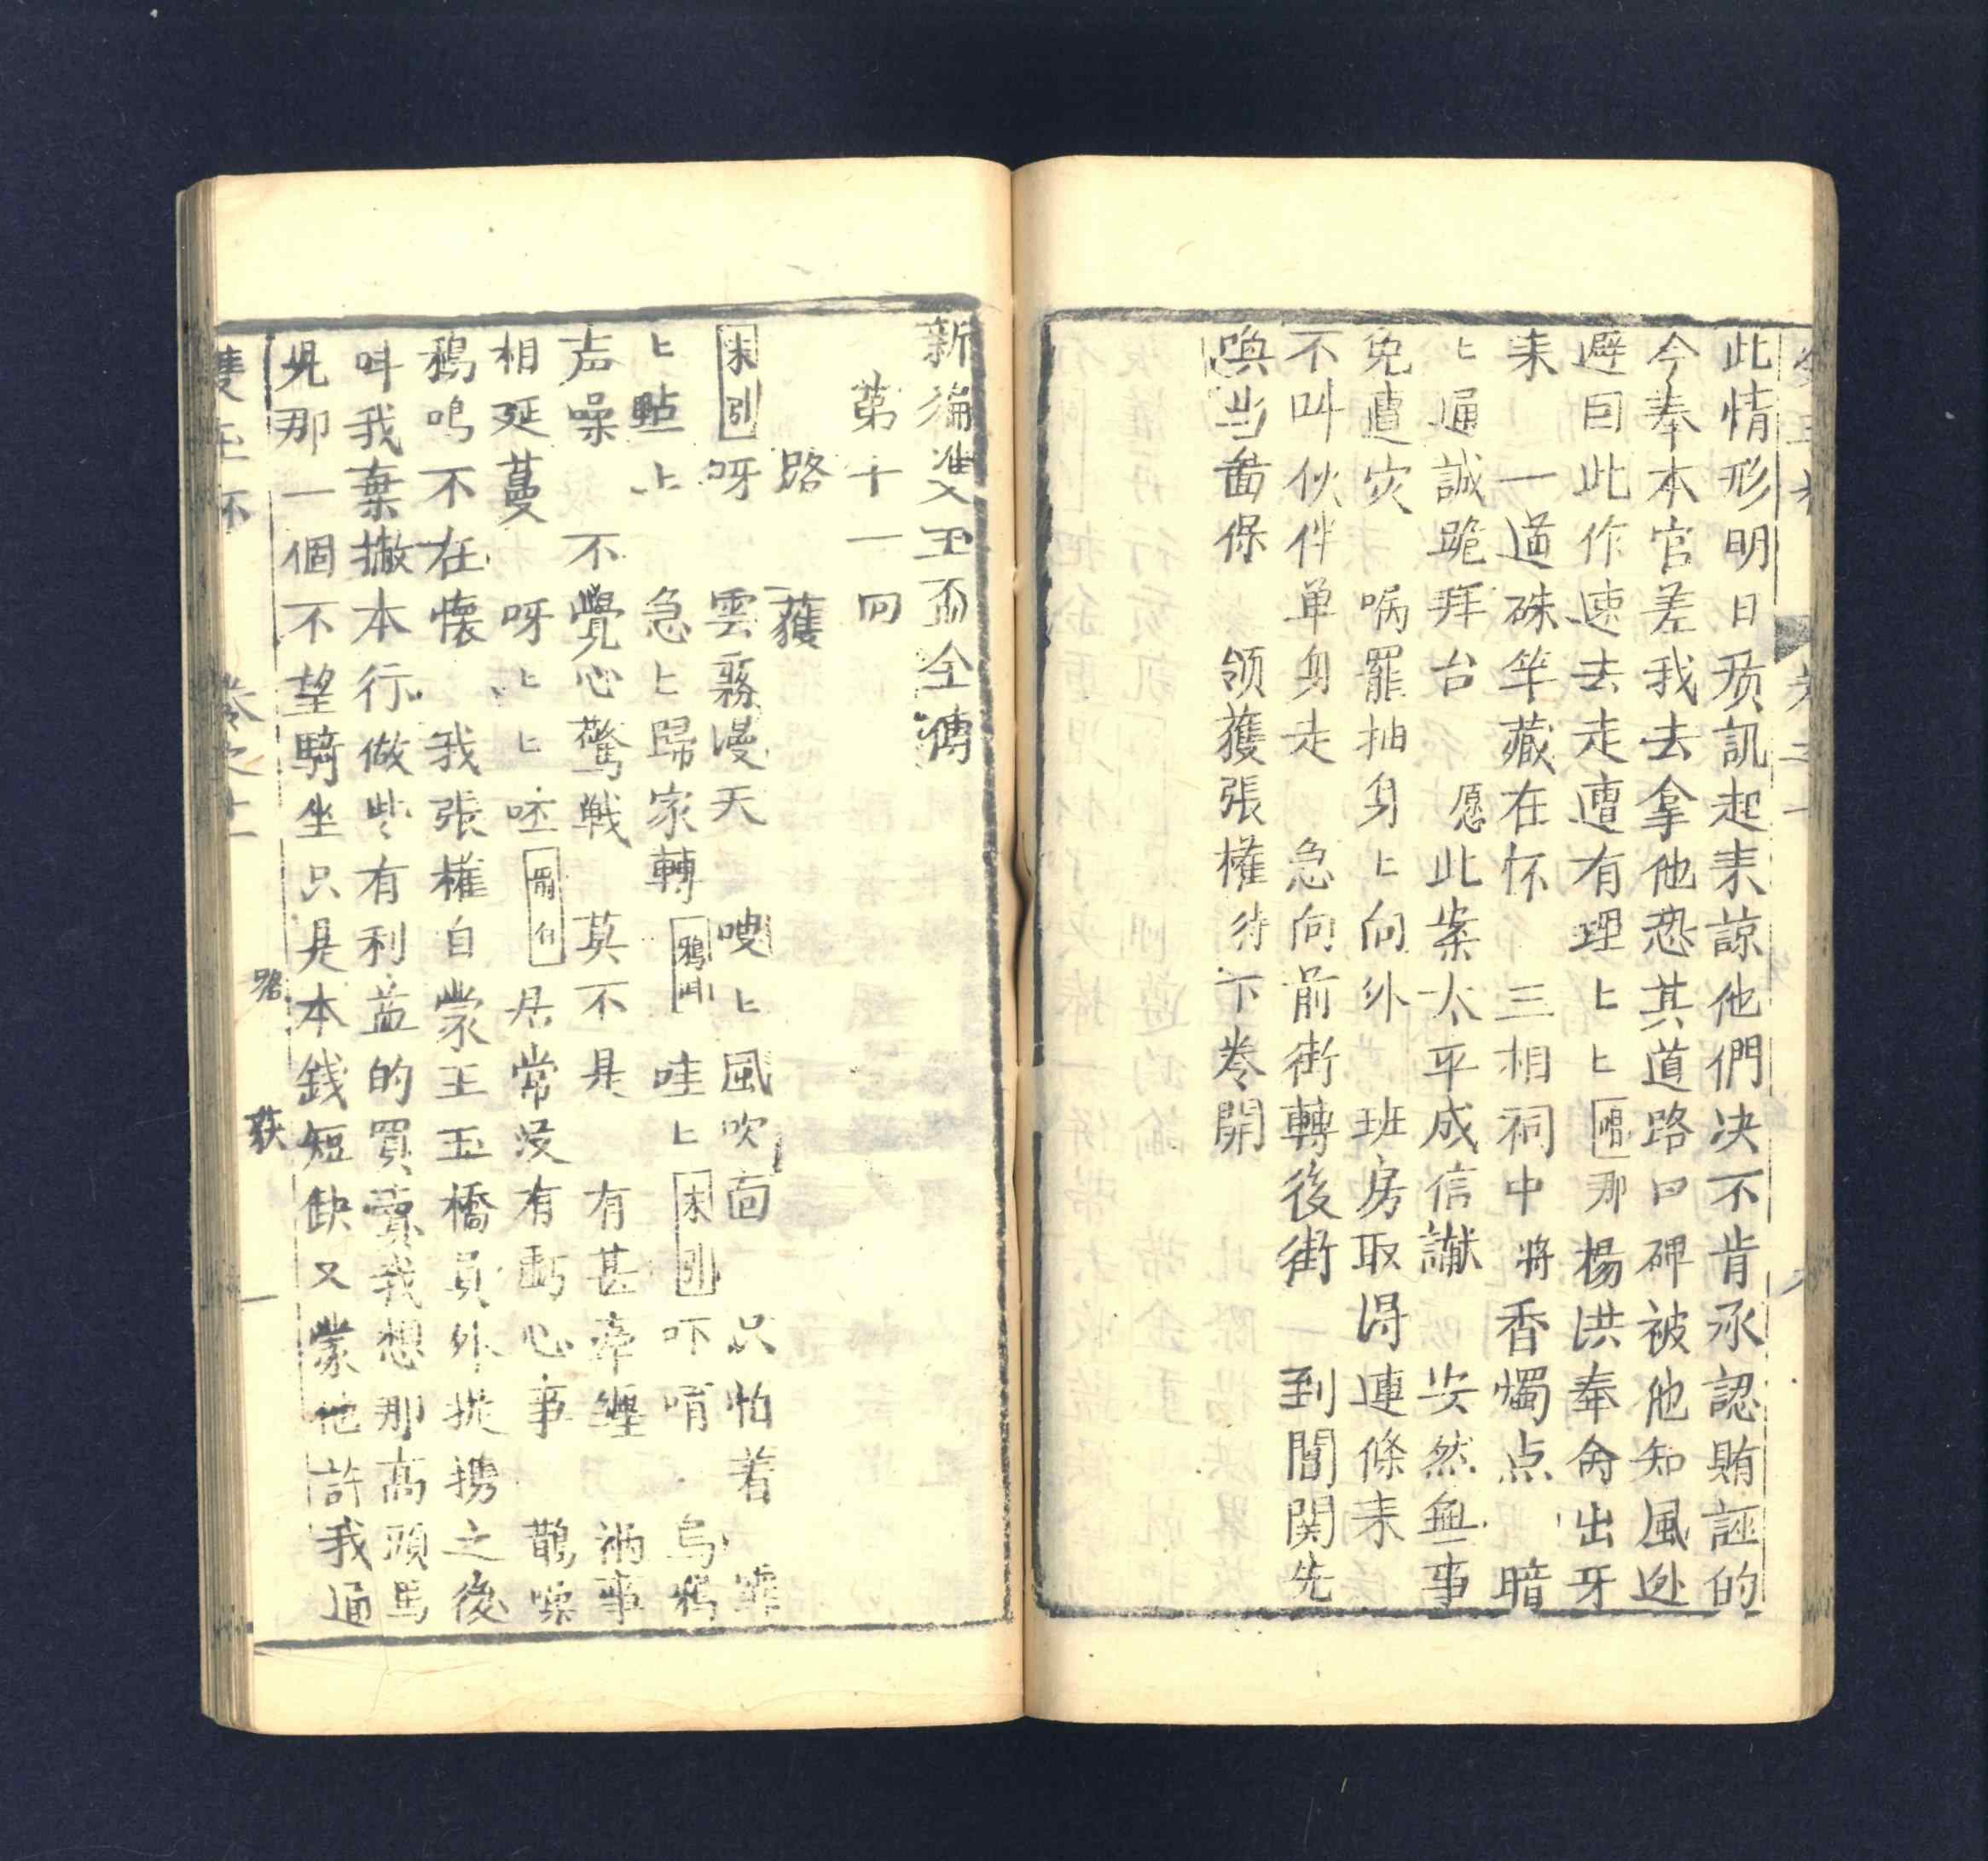 此情形明日㱏訊起来諒他們决不肯承認賄誣的
今奉本官差我去拿他恐其道路口碑被他知風迯
避囙此作速去走遭有理ヒヒ那楊洪奉命出牙
来 一道硃竿藏在怀 三相祠中將香燭点 暗
ヒ通誠跪拜台 愿此案太平成信讞 安然無事
免遭灾 嘱罷抽身ヒ向外 班房取淂連條来
不叫伙伴单身走 急向前街轉後街 到閶関先
喚当啚保 领獲張權待下卷開
新編双玉盃全傳
第十一回
路 獲
末引 呀 雲霧漫天 嗖ヒ風吹面 只怕着 霏
ヒ點ヒ 急ヒ歸家轉 鴉叫 哇ヒ 末引 吓唷 烏鴉
声噪 不覺心驚戦 莫不是 有甚牽纏 禍事
相延蔓 呀ヒヒ呸 白 居常没有虧心事 鵲噪
鴉鳴不在懐 我張權自蒙王玉橋員外提携之後
呌我棄撇本行做些有利益的買賣我想那高頭馬
児那一個不望騎坐只是本錢短缺又蒙他許我通
雙玉杯 卷之十一 路 获 一